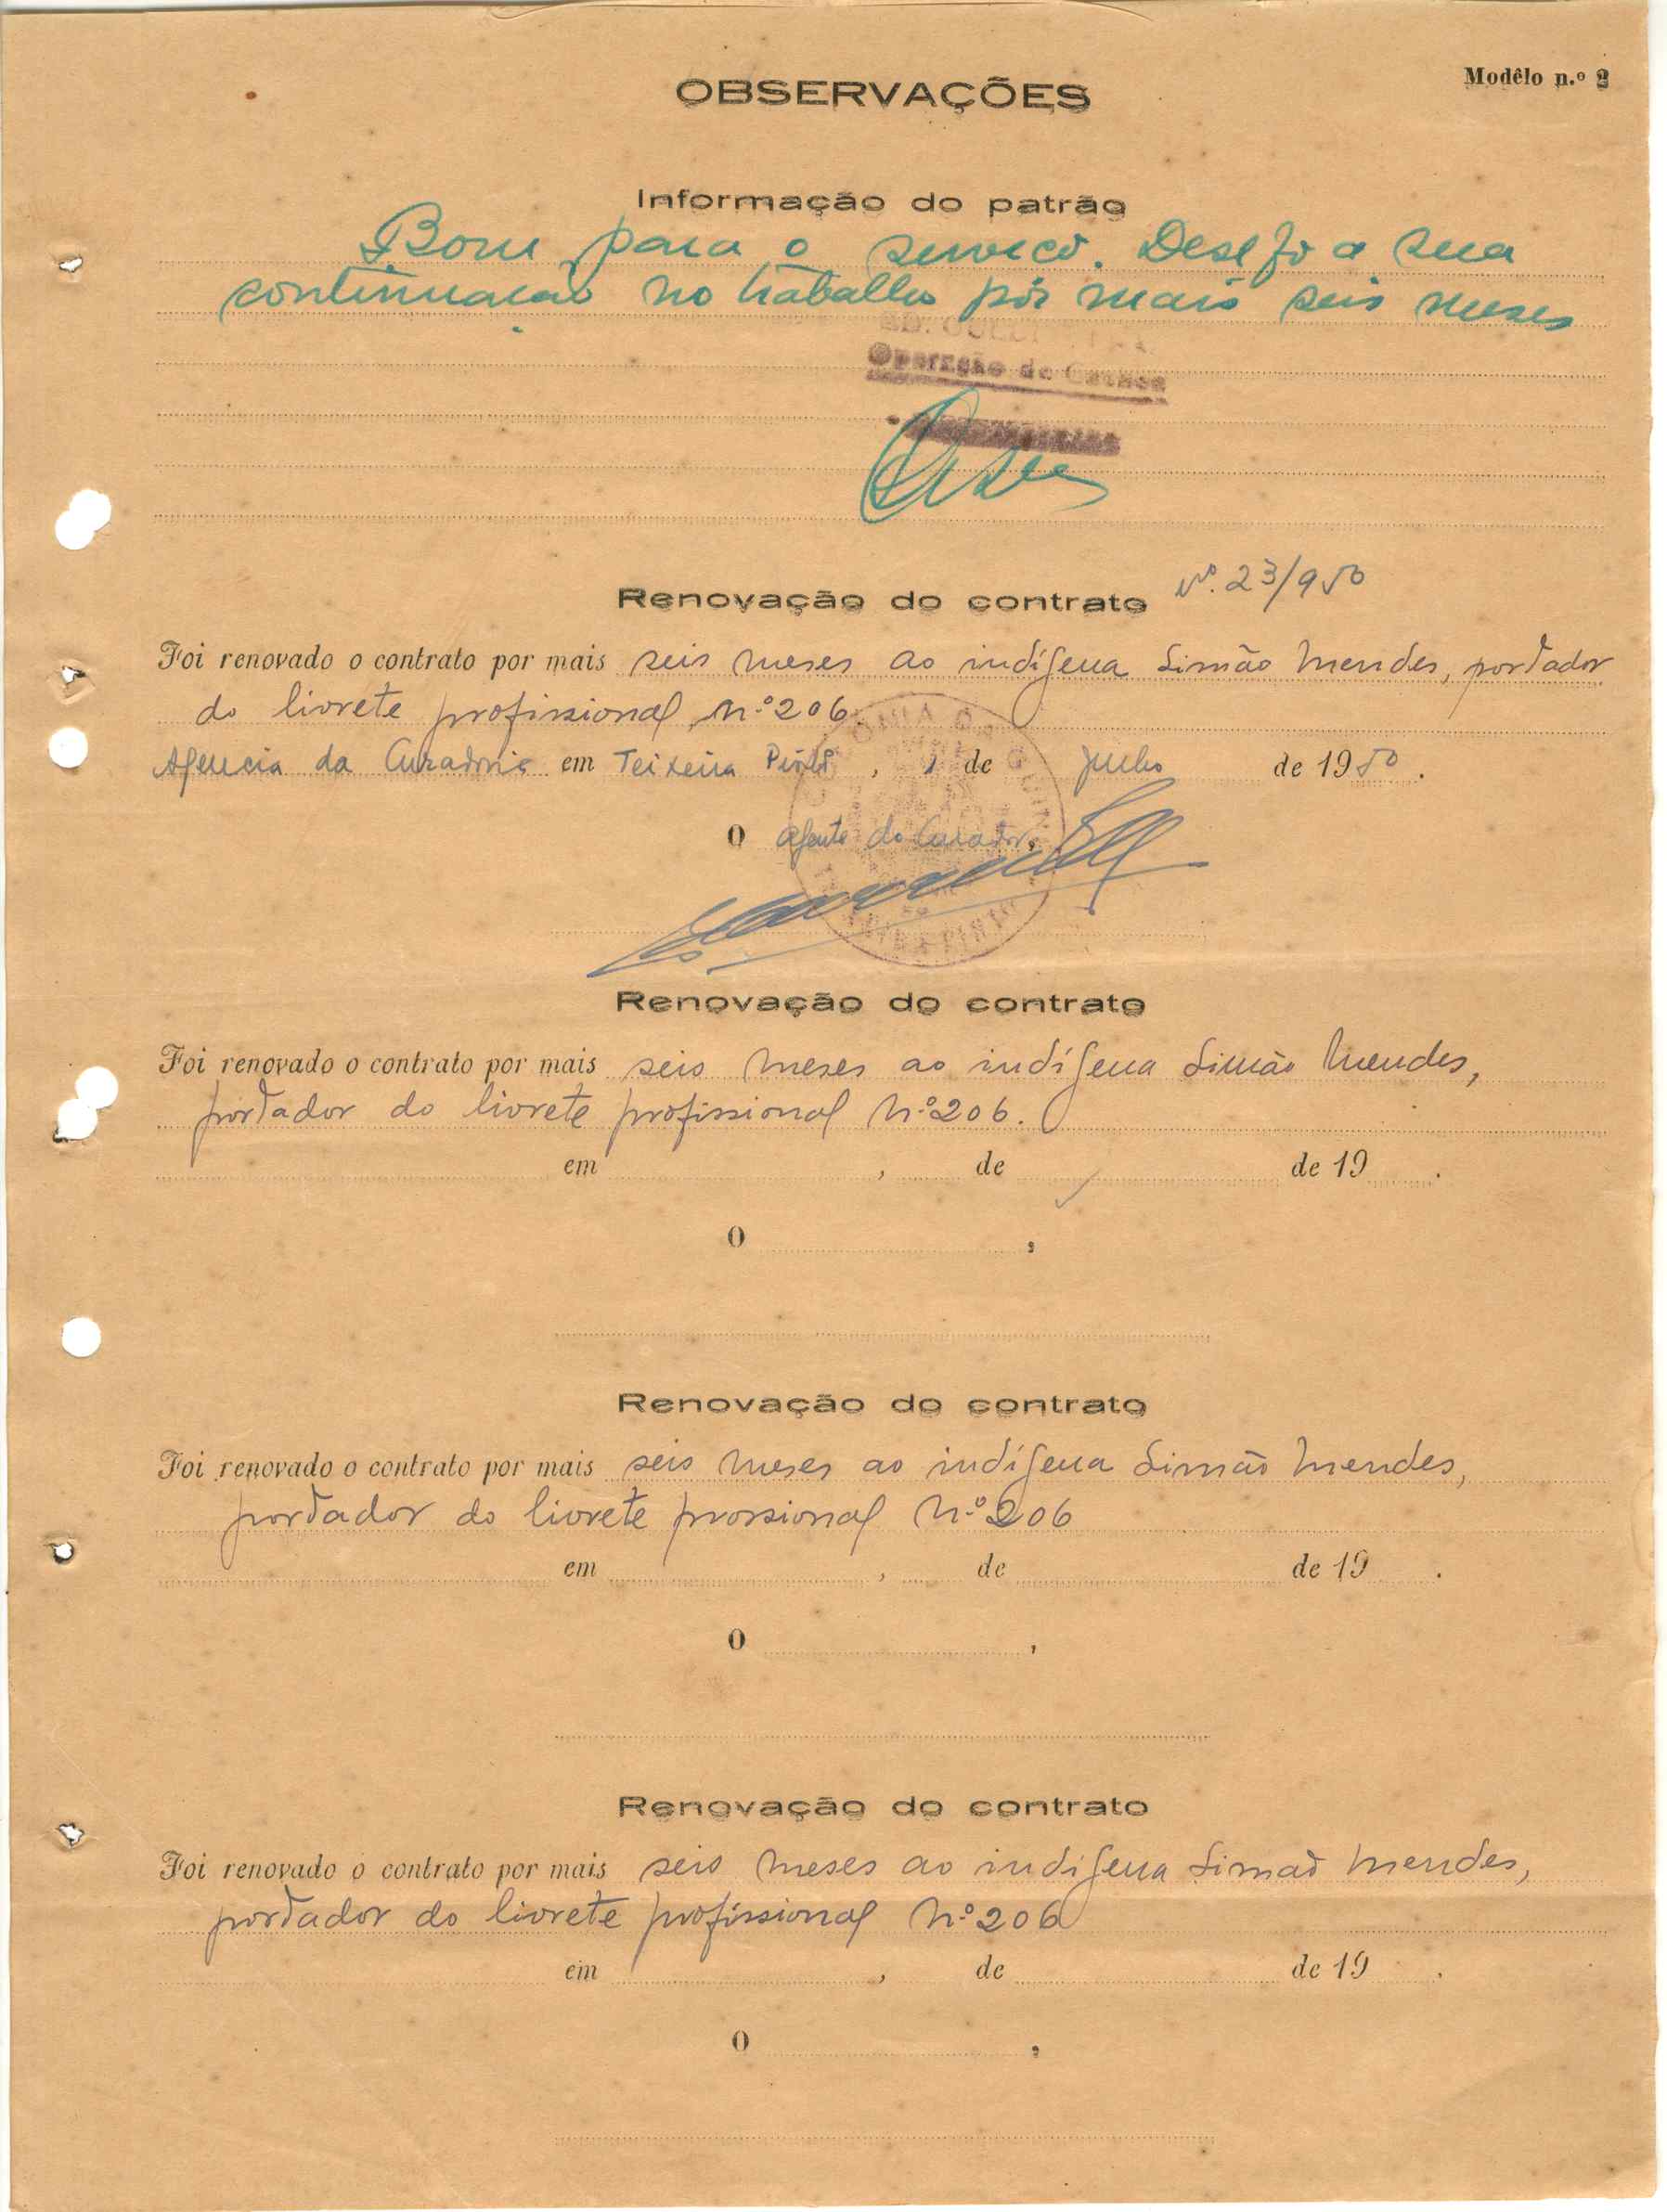 Modêlo n.º 2
OBSERVAÇÕES
Informação do patrão
Bom para o serviço. Desejo a sua
continuação no trabalho pôr mais seis meses
Operação de
Renovação do contrato Nº. 23/950
Foi renovado o contrato por mais seis meses ao indígena Simão Mendes, portador
do livrete profissional, n.º 206
Agencia da Curadoria em Teixeira Pinto, 1 de Julho de 1950.
O agente do Curador,
Renovação do contrato
Foi renovado o contrato por mais seis meses ao indígena Simão Mendes,
portador do livrete profissional N.º 206.
em , de de 19 .
O ,
Renovação do contrato
Foi renovado o contrato por mais seis meses ao indígena Simão Mendes,
portador do livrete prossional N.º 206
em , de de 19 .
O ,
Renovação do contrato
Foi renovado o contrato por mais seis meses ao indígena Simão Mendes,
portador do livrete profissional N.º 206
em , de de 19 .
O ,